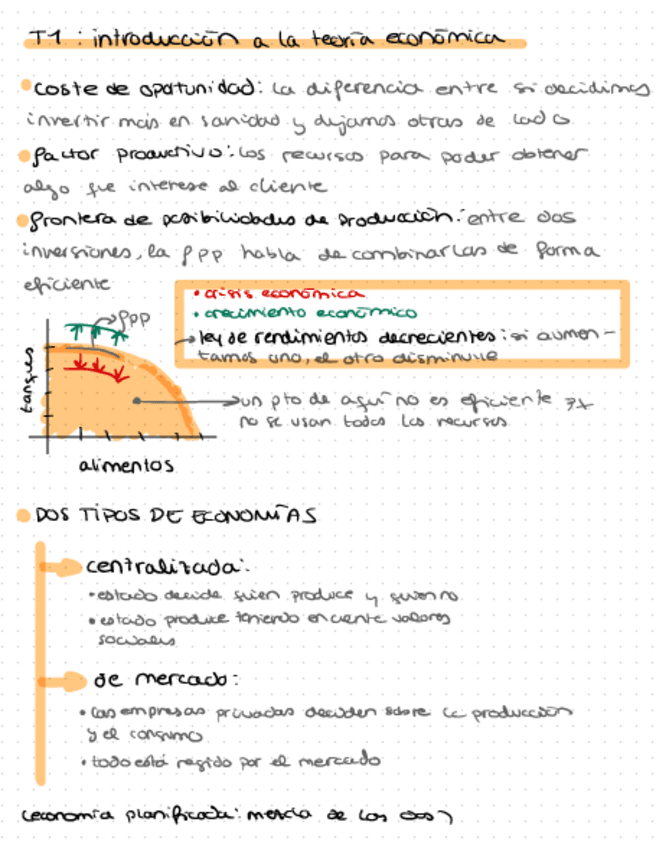 T1: introducción a la teoría económica
coste de oportunidad: la diferencia entre si decidimos
invertir más en sanidad y dejamos otras de lado
factor productivo: los recursos para poder obtener
algo que interese al cliente
frontera de posibilidades de producción: entre dos
inversiones, la fpp habla de combinarlas de forma
eficiente
• crisis económica
• crecimiento económico
ley de rendimientos decrecientes: si aumen-
tamos uno, el otro disminuye
fpp
tanques
un pto de aquí no es eficiente
no se usan todos los recursos
alimentos
DOS TIPOS DE ECONOMÍAS
centralizada:
• estado decide quien produce y quien no
• estado produce teniendo en cuenta valores
sociales
de mercado:
• las empresas privadas deciden sobre la producción
y el consumo
• todo está regido por el mercado
(economía planificada: mezcla de los dos)